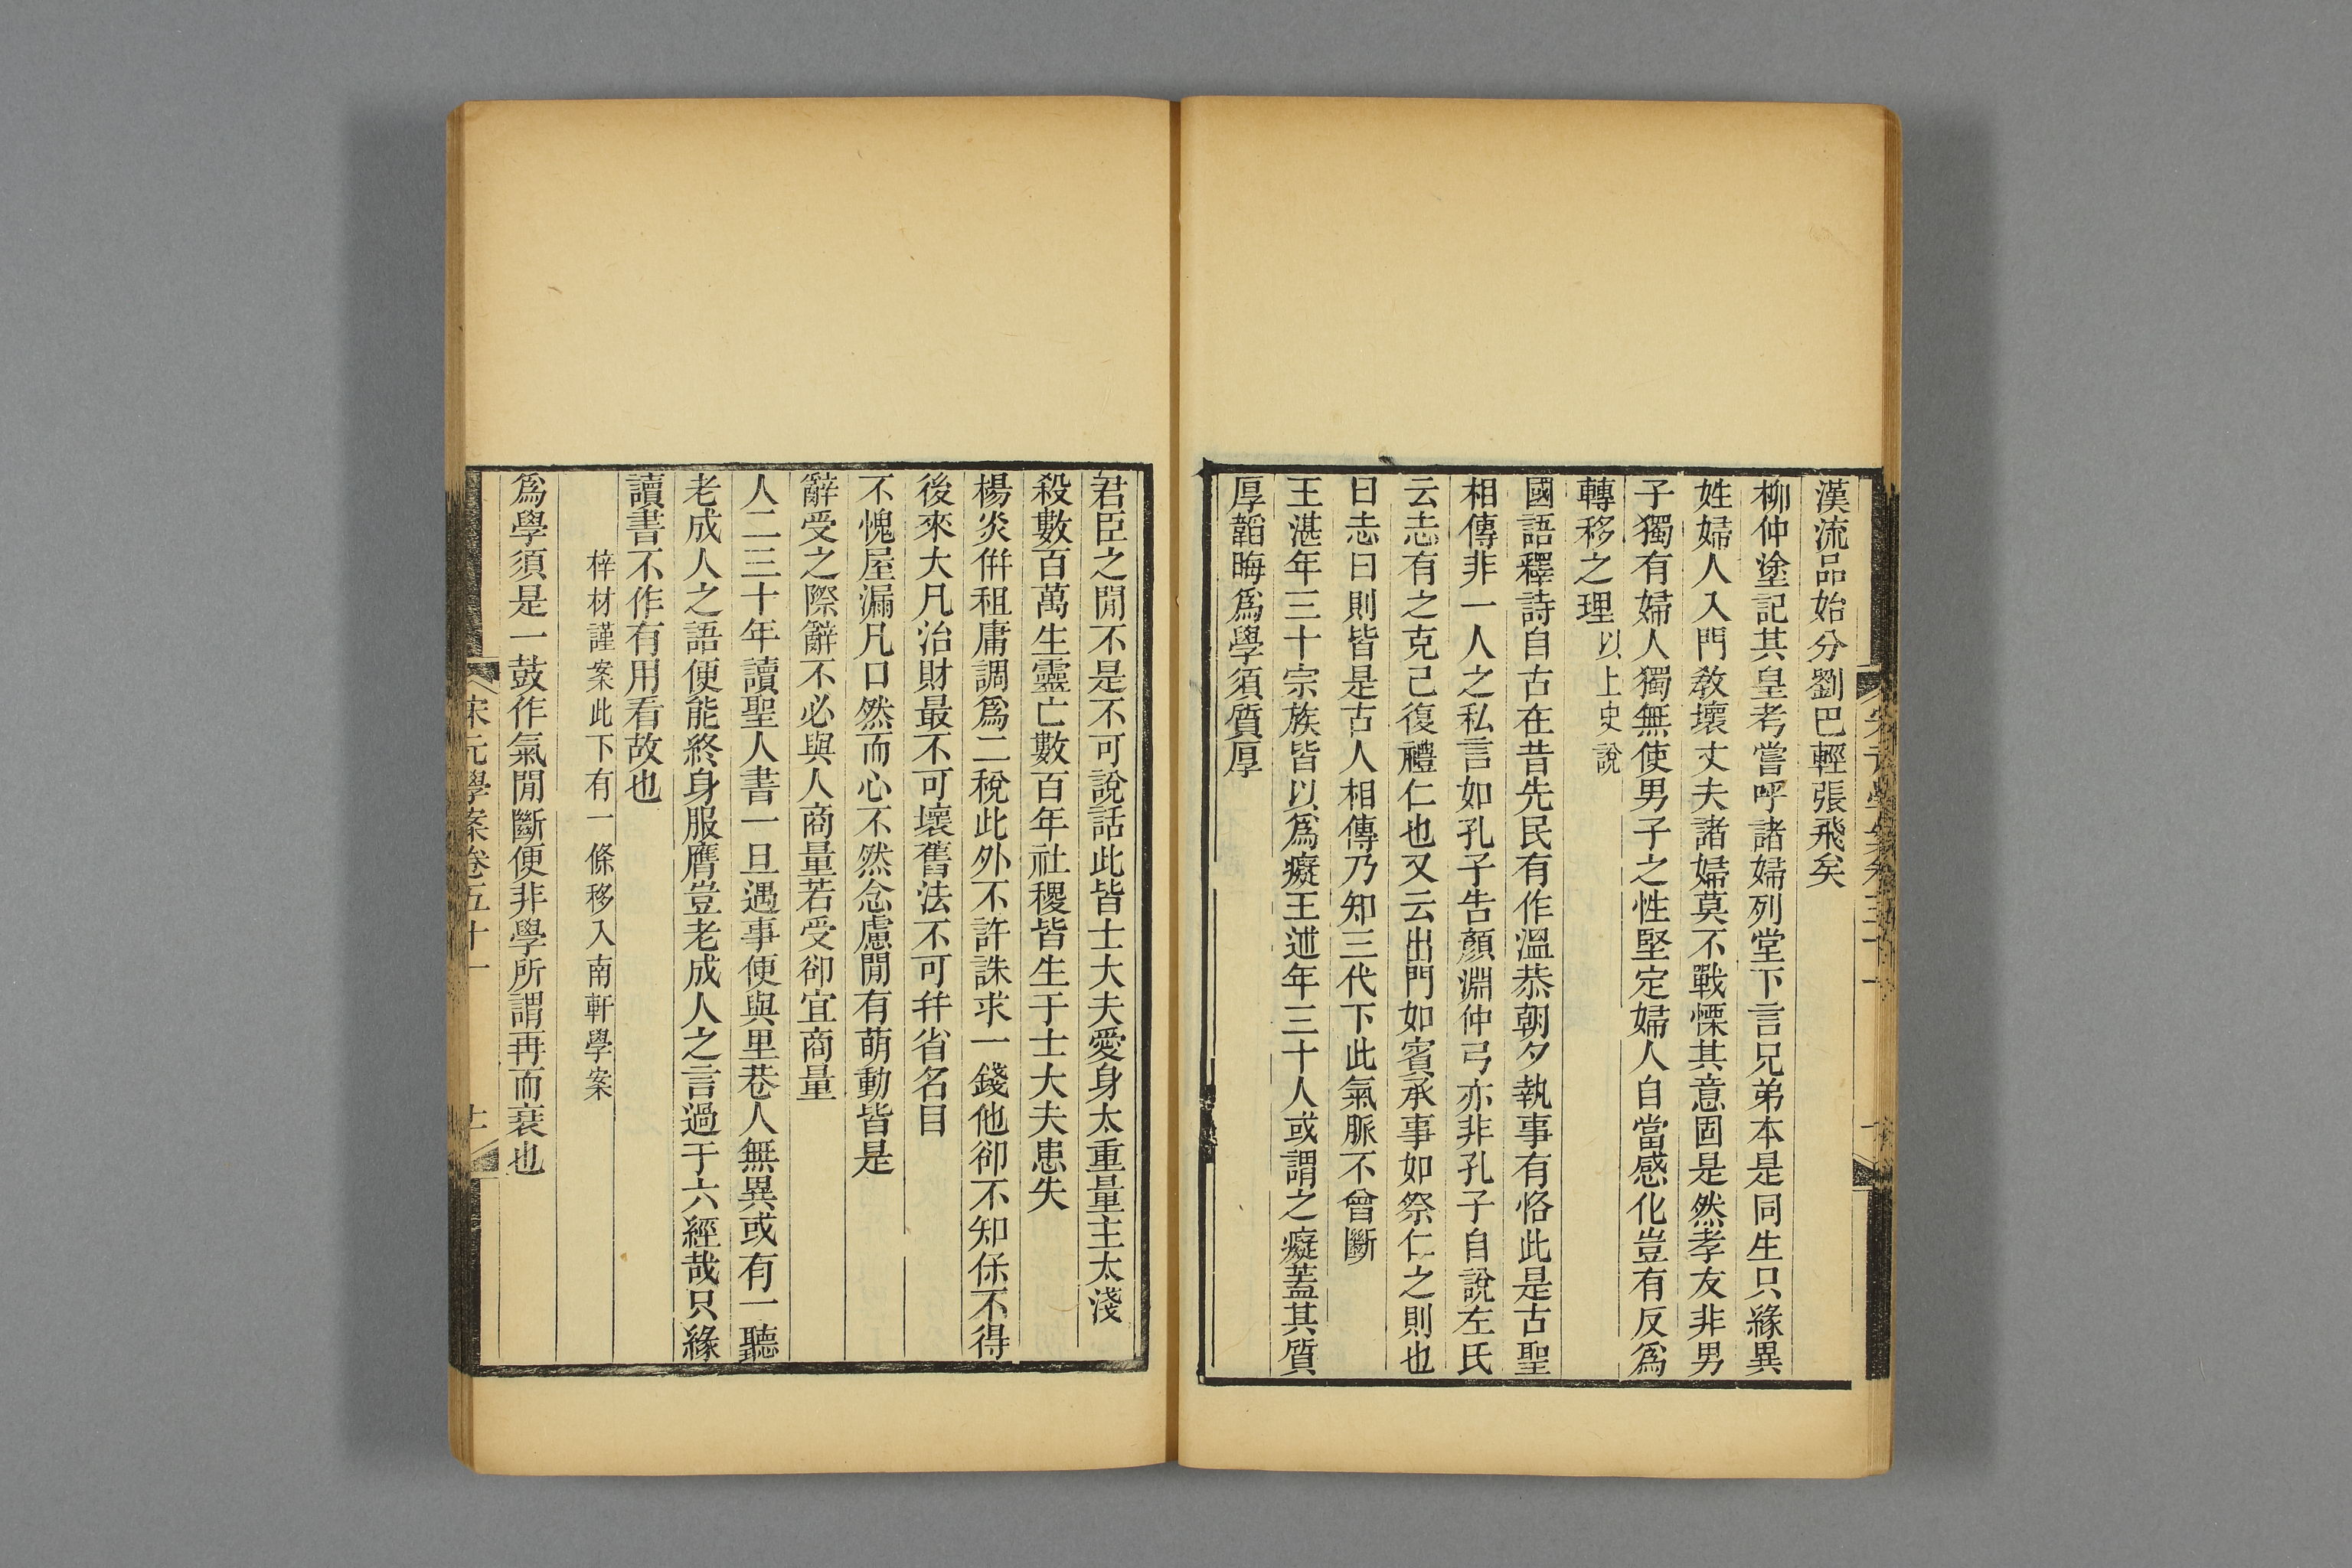 漢流品始分劉巴輕張飛矣
柳仲塗記其皇考嘗呼諸婦列堂下言兄弟本是同生只緣異
姓婦人入門敎壞丈夫諸婦莫不戰慄其意固是然孝友非男
子獨有婦人獨無使男子之性堅定婦人自當感化豈有反爲
轉移之理以上史說
國語釋詩自古在昔先民有作溫恭朝夕執事有恪此是古聖
相傳非一人之私言如孔子告顏淵仲弓亦非孔子自說左氏
云志有之克己復禮仁也又云出門如賓承事如祭仁之則也
曰志曰則皆是古人相傳乃知三代下此氣脈不曾斷
王湛年三十宗族皆以爲癡王述年三十人或謂之癡蓋其質
厚韜晦爲學須質厚
君臣之閒不是不可說話此皆士大夫愛身太重量主太淺
殺數百萬生靈亡數百年社稷皆生于士大夫患失
楊炎倂租庸調爲二稅此外不許誅求一錢他卻不知保不得
後來大凡治財最不可壞舊法不可幷省名目
不愧屋漏凡口然而心不然念慮閒有萌動皆是
辭受之際辭不必與人商量若受卻宜商量
人二三十年讀聖人書一旦遇事便與里巷人無異或有一聽
老成人之語便能終身服膺豈老成人之言過于六經哉只緣
讀書不作有用看故也
梓材謹案此下有一條移入南軒學案
爲學須是一鼓作氣閒斷便非學所謂再而衰也
宋元學案卷五十一